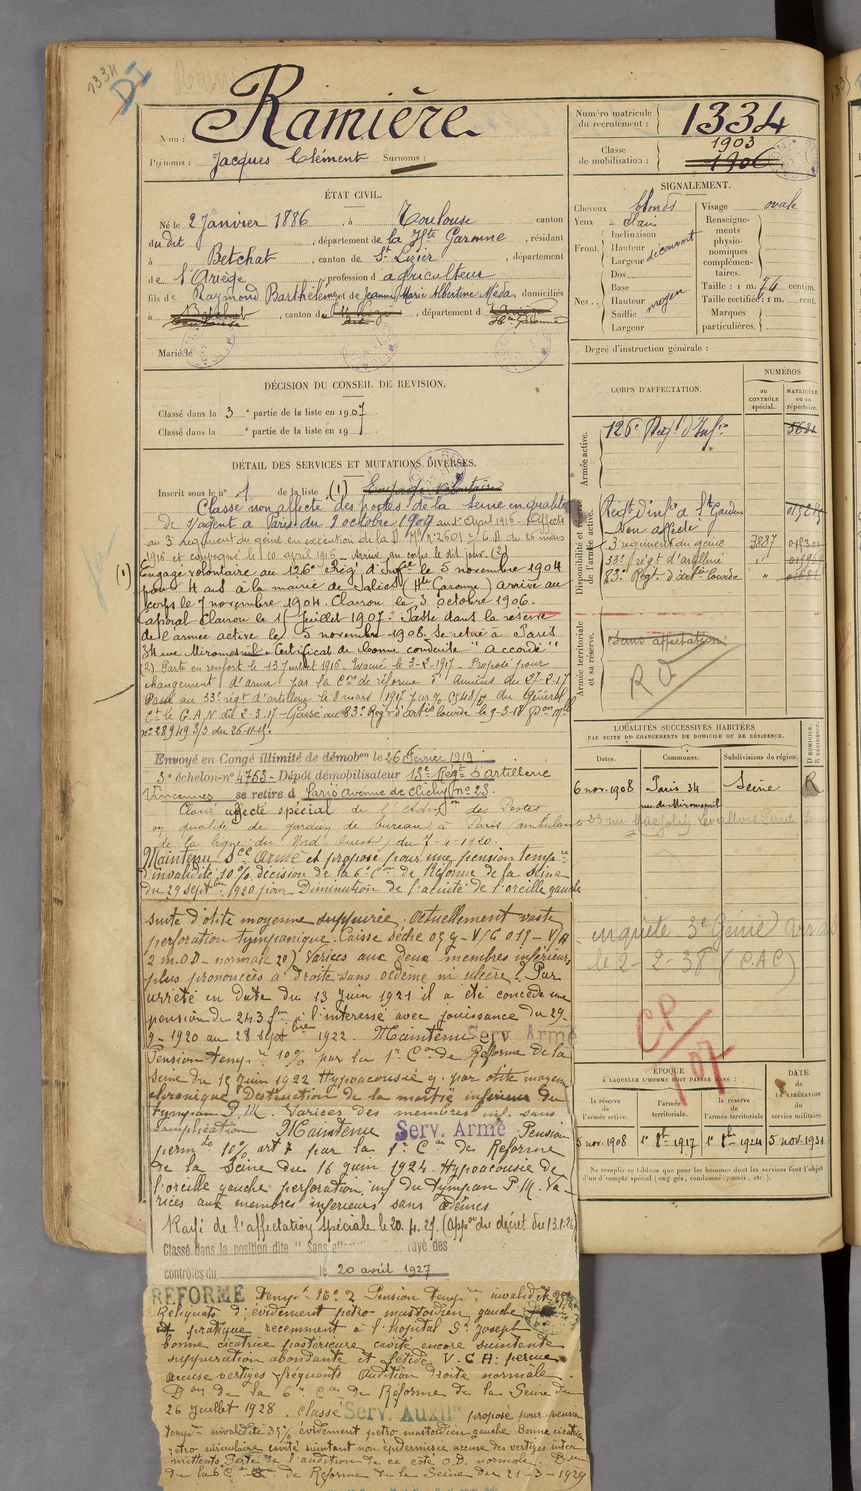 1334
DI
Ramière
Nom :
Prénoms : Jacques Clément Surnoms :
Numéro matricule du recrutement : 1334
Classe de mobilisation : 1903
1906
ÉTAT CIVIL.
Né le 2 Janvier 1886, à Toulouse canton
du dit, département de la Hte Garonne, résidant
à Betchat, canton de St Lizier, département
de l'Ariège, profession d agriculteur
fils de Raymond Barthélémy et de Jeanne Marie Albertine Méda domiciliés
à Betchat, canton de, département d
Toulouse Hte Garonne
Marié le
SIGNALEMENT.
Cheveux blonds Visage ovale
Yeux
Front. Inclinaison
Hauteur découvert
Largeur
Nez. Dos
Base
Hauteur moyen
Saillie
Largeur
Renseignements physionomiques complémentaires.
Taille : 1 m. 74 centim.
Taille rectifiée : 1 m. cent.
Marques particulières.
Degré d'instruction générale :
DÉCISION DU CONSEIL DE REVISION.
Classé dans la 3e partie de la liste en 1907
Classé dans la e partie de la liste en 19
CORPS D'AFFECTATION.
NUMÉROS
au CONTRÔLE spécial.
MATRICULE ou au répertoire.
Armée active.
126e Régt d'Infie
Disponibilité et réserve de l'armée active.
Régt d'Infie à St Gaudens
Non affecté
3e régiment du génie 3887
33e rég. d'artillerie "
83e Régt d'artie lourde "
Armée territoriale et sa réserve.
Sans affectation
DÉTAIL DES SERVICES ET MUTATIONS DIVERSES.
Inscrit sous le n° 1 de la liste (1) Engagé volontaire
Classé non affecté des postes de la Seine en qualité
de s/agent à Paris du 2 octobre 1909 au 1er April 1916 - Affecté
au 3e régiment du génie en exécution de la D. M. n° 2601 du 26 mars
1916 et convoqué le 10 avril 1916 - Arrivé au corps le dit jour. (2)
(1) Engagé volontaire au 126e Rég. d'Infie le 5 novembre 1904
pour 4 ans à la mairie de Salies (Hte Garonne) arrivé au
corps le 7 novembre 1904. Clairon le 3 octobre 1906.
Caporal Clairon le 1er Juillet 1907. Passé dans la réserve
de l'armée active le 5 novembre 1908. se retire à Paris
34 rue Miromesnil - Certificat de bonne conduite "accordé"
(2) Parti en renfort le 13 Juillet 1916. Evacué le 3-2-1917 - Proposé pour
changement d'arme par la Con de réforme d'Amiens du 27-2-17
Passé au 33e régt d'artillerie le 8 mars 1917 par n° du Général
Ct le G.A.N du 2-3-17 - Passé au 83e Régt d'artie lourde le 9-3-18
n° 28949 3/3 du 26-11-17.
Envoyé en Congé illimité de démobon le 26 Février 1919
3e échelon - n° 4753 - Dépôt démobilisateur 13e Régt d'artillerie
Vincennes se retire à Paris avenue de Clichy n° 23.
Classé affecté spécial de l'Admon des Postes
en qualité de gardien de bureau à Paris (ambulant
de la ligne du Nord Ouest) du 7-4-1920.
Maintenu Sce Armé et proposé pour une pension tempre
d'invalidité 10% décision de la 6e Con de Réforme de la Seine
du 29 septbre 1920 pour Diminution de l'acuité de l'oreille gauche
suite d'otite moyenne suppurée. Actuellement vaste
perforation tympanique. Caisse sèche
2 m. O.D - normale 2°) Varices aux deux membres inférieurs
plus prononcées à droite sans oedème ni ulcère. Par
arrêté en date du 13 Juin 1921 il a été concédé une
pension de 243 frs à l'intéressé avec jouissance du 29-
9-1920 au 28 septbre 1922. Maintenu Serv. Armé
Pension tempre 10% par la 1e Con de Réforme de la
Seine du 15 Juin 1922 Hypoacousie g. par otite moyenne
chronique. Destruction de la moitié inférieure du
tympan P.M. Varices des membres inf. sans
complication Maintenu Serv. Armé Pension
permte 10% art 7 par la 1e Con de Réforme
de la Seine du 16 juin 1924. Hypoacousie de
l'oreille gauche perforation inf du tympan P.M. Va-
rices aux membres inférieurs sans oedèmes
Rayé de l'affectation spéciale le 20.4.27. (Appon du décret du 13.1.26)
Classé dans la position dite "Sans rayé des
contrôles du le 20 avril 1927
RÉFORMÉ tempre n° 2 Pension tempre invalidité
Reliquats d'évidement petro mastoïdien gauche
pratiqué récemment à l'hopital St Joseph
bonne cicatrice postérieure cavité encore suintante
suppuration abondante et fétide V.C.A. perdue
accuse vertiges fréquents Audition droite normale.
Don de la 6e Con de Réforme de la Seine du
26 Juillet 1928. Classé Serv. Auxil. proposé pour pension
tempre invalidité 35% évidement petro mastoïdien gauche. Bonne cicatrice
retro auriculaire cavité suintant non épidermisée accuse des vertiges inter
mittents. Perte de l'audition de ce côté O.D. normale. Don
de la 6e Con de Réforme de la Seine du 21-3-1929
LOCALITÉS SUCCESSIVES HABITÉES
PAR SUITE DE CHANGEMENTS DE DOMICILE OU DE RÉSIDENCE.
Dates. Communes. Subdivisions de région. D DOMICILE. R RÉSIDENCE.
6 nov. 1908 Paris 34 rue de Miromesnil Seine R
enquête 3e Génie Arras
le 2-2-38 (C.A.C)
CP/107
ÉPOQUE
À LAQUELLE L'HOMME DOIT PASSER DANS :
la réserve de l'armée active.
l'armée territoriale.
la réserve de l'armée territoriale
DATE de LA LIBÉRATION du service militaire.
5 nov. 1908 1er 8bre 1917 1er 8bre 1924 5 nov. 1931
Ne remplir ce tableau que pour les hommes dont les services font l'objet
d'un compte spécial (engagés, condamnés, omis, etc.).